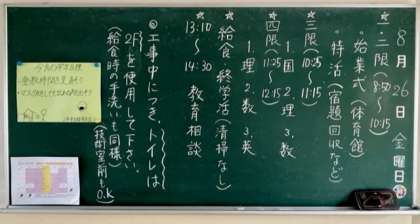 8月26日 金曜日
★一・二限(8:50〜10:15)
・始業式(体育館)
・特活(宿題回収など)
★三限(10:25〜11:15)
1.国 2.理 3.数
★四限(11:25〜12:15)
1.理 2.数 3.英
★給食・終学活(清掃なし)
★13:10〜14:30 教育相談
◎工事中につき、トイレは
2Fを使用して下さい。
(給食時の手洗いも同様)
(技術室前もO.K)